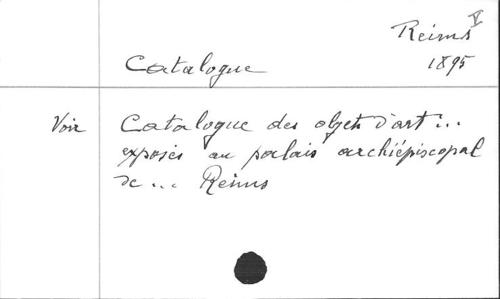 Reims V
1895
Catalogue
Voir Catalogue des objets d'art...
exposés au palais archiépiscopal
de ... Reims